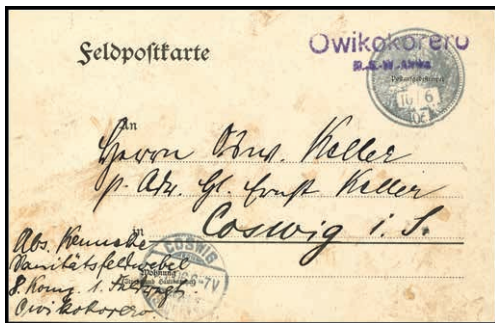 Feldpostkarte
Owikokorero
D.S.W. Afrika
10 6
An
Herrn Keller
p. Adr. Ernst Keller
in Coswig i. S.
COSWIG
6-7V
Wohnung
Abs.
Sanitätsfeldwebel
8. Komp. 1. Feldregt
Owikokorero